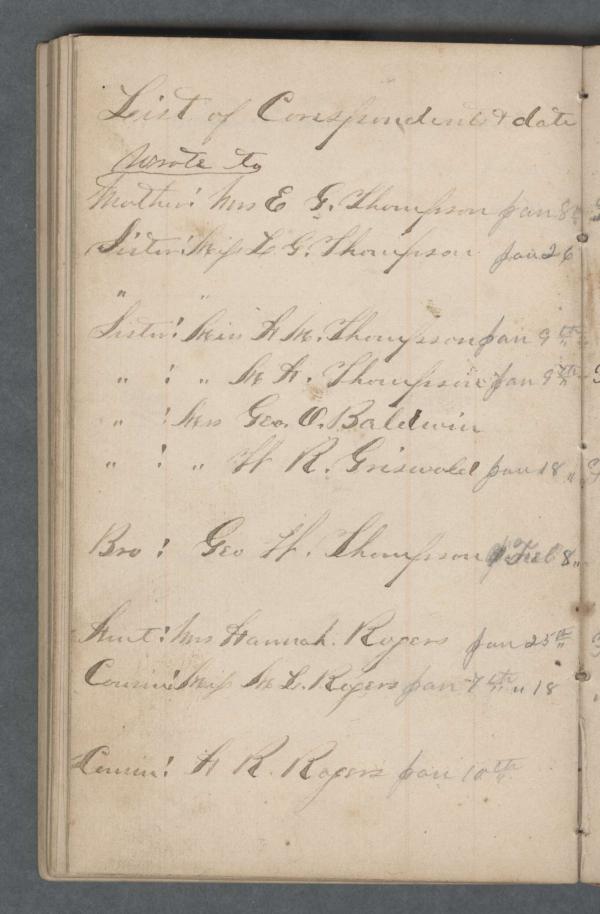 List of Corespondents & date
wrote to
Mother: Mrs E G. Thompson Jan 8
Sister: Miss L G. Thompson Jan 26
" "
Sister: Thompson Jan 9th
" : " Thompson Jan 9th
" : Mrs Geo. O. Baldwin
" : " R. Griswold Jan 18 "
Bro : Geo W. Thompson Feb 8 "
Aunt: Mrs Hannah. Rogers Jan 25th "
Cousin: Miss M L. Rogers Jan 7th " 18
Cousin: R. Rogers Jan 10th